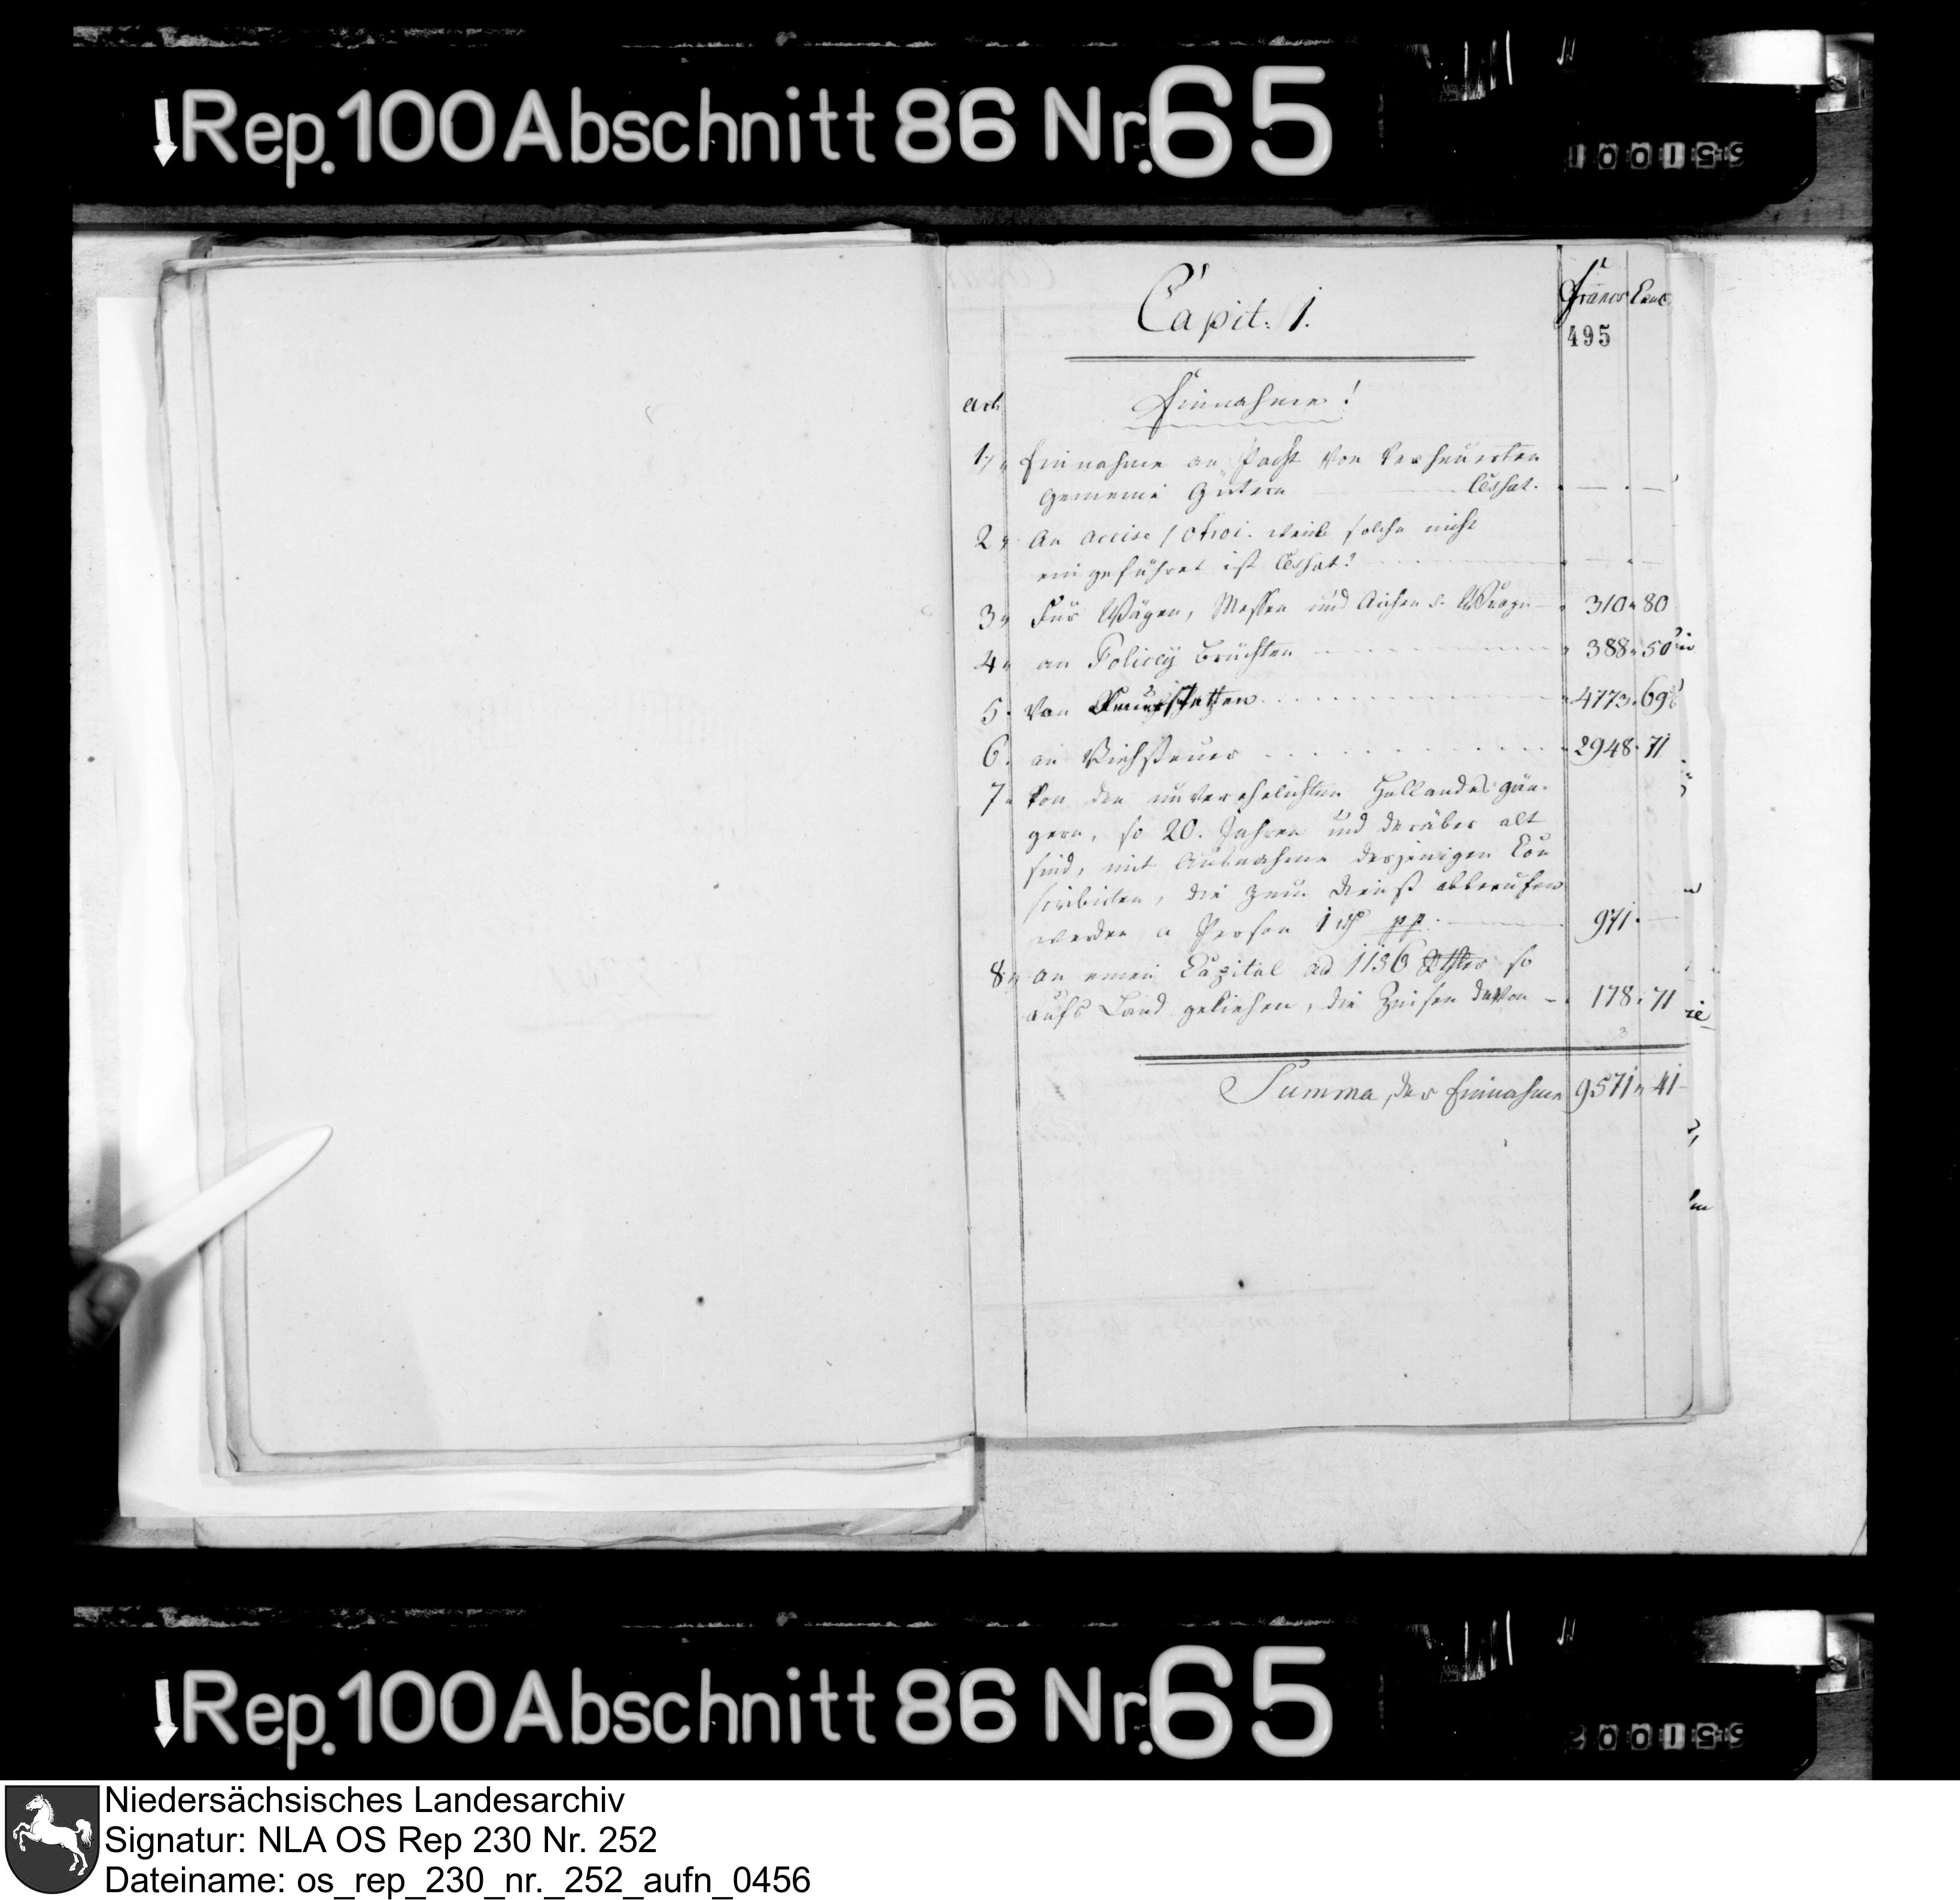 Rep. 100 Abschnitt 86 Nr. 65
Capit: 1.
Francs Cent
495
Art
Einnahme!
1, Einnahme an Pacht von verheuerten
Gemeine Gütern Cessat.
2, An Accise / Otroi. weil solche nicht
eingeführet ist Cessat!
3, Für Wägen, Messen und Aichen d. Wroge 310 80
4, an Policey Brüchten 388 50
5. Von Feuerstetten 4773 69
6. an Viehsteuer 2948 71
7. Von den unverehelichten Hollandsgän-
gern, so 20. Jahren und darüber alt
sind, mit Ausnahme derjenigen Con
scribirten, die zum Dienst abberufen
werden a Person 1 pp. 971
8, an einen Capital ad 1136 Rthlr so
aufs Land geliehen, die Zinsen davon 178 71
Summa, der Einnahme 9571 41
Rep. 100 Abschnitt 86 Nr. 65
Niedersächsisches Landesarchiv
Signatur: NLA OS Rep 230 Nr. 252
Dateiname: os_rep_230_nr._252_aufn_0456